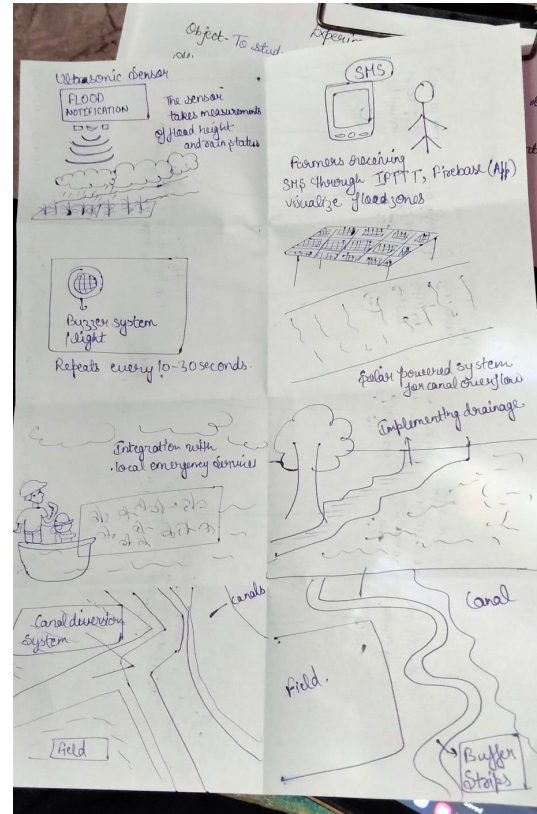 Object- To stud
Experim
Ultrasonic Sensor
FLOOD
NOTIFICATION
The sensor
takes measurements
of flood height
and rain status
SMS
Farmers receiving
SMS through IFTTT, Firebase (App)
visualize flood zones
Buzzer system
/light
Repeats every 10-30 seconds.
Solar powered system
for canal overflow
Integration with
local emergency service
Implementing drainage
Canal diversion
System
canals
Field
Canal
Field.
Buffer
Strips